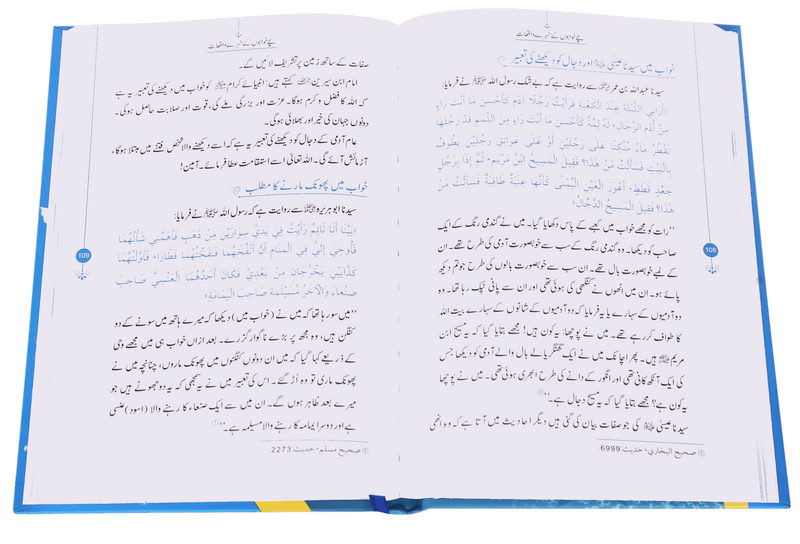 سچے خوابوں کے سنہرے واقعات
خواب میں سیدنا عیسیٰ علیہ السلام اور دجال کو دیکھنے کی تعبیر
سیدنا عبداللہ بن عمر رضی اللہ عنہما سے روایت ہے کہ بے شک رسول اللہ ﷺ نے فرمایا:
«أَرَانِي اللَّيْلَةَ عِنْدَ الْكَعْبَةِ فَرَأَيْتُ رَجُلًا آدَمَ كَأَحْسَنِ مَا أَنْتَ رَاءٍ
مِنْ أُدْمِ الرِّجَالِ، لَهُ لِمَّةٌ كَأَحْسَنِ مَا أَنْتَ رَاءٍ مِنَ اللِّمَمِ قَدْ رَجَّلَهَا
تَقْطُرُ مَاءً مُتَّكِئًا عَلَى رَجُلَيْنِ أَوْ عَلَى عَوَاتِقِ رَجُلَيْنِ يَطُوفُ
بِالْبَيْتِ فَسَأَلْتُ مَنْ هَذَا؟ فَقِيلَ الْمَسِيحُ ابْنُ مَرْيَمَ، ثُمَّ إِذَا بِرَجُلٍ
جَعْدٍ قَطَطٍ، أَعْوَرِ الْعَيْنِ الْيُمْنَى كَأَنَّهَا عِنَبَةٌ طَافِيَةٌ فَسَأَلْتُ مَنْ
هَذَا؟ فَقِيلَ الْمَسِيحُ الدَّجَّالُ»
''رات کو مجھے خواب میں کعبے کے پاس دکھایا گیا۔ میں نے گندمی رنگ کے ایک
صاحب کو دیکھا۔ وہ گندمی رنگ کے سب سے خوبصورت آدمی کی طرح تھے۔ ان
کے لمبے خوبصورت بال تھے۔ ان سب سے خوبصورت بالوں کی طرح جو تم دیکھ
پائے ہو۔ ان میں انھوں نے کنگھی کی ہوئی تھی اور ان سے پانی ٹپک رہا تھا۔ وہ
دو آدمیوں کے سہارے یا یہ فرمایا کہ دو آدمیوں کے شانوں کے سہارے بیت اللہ
کا طواف کر رہے تھے۔ میں نے پوچھا: یہ کون ہیں؟ مجھے بتایا گیا کہ یہ مسیح ابن
مریم علیہ السلام ہیں۔ پھر اچانک میں نے ایک گھنگریالے بال والے آدمی کو دیکھا جس
کی ایک آنکھ کانی تھی اور انگور کے دانے کی طرح ابھری ہوئی تھی۔ میں نے پوچھا
یہ کون ہے؟ مجھے بتایا گیا کہ یہ مسیح دجال ہے۔''①
سیدنا عیسیٰ علیہ السلام کی جو صفات بیان کی گئی ہیں دیگر احادیث میں آتا ہے کہ وہ انھی
① صحیح البخاري، حدیث: 6999.
108
سچے خوابوں کے سنہرے واقعات
صفات کے ساتھ زمین پر تشریف لائیں گے۔
امام ابن سیرین رحمہ اللہ کہتے ہیں: انبیائے کرام علیہم السلام کو خواب میں دیکھنے کی تعبیر یہ ہے
کہ اللہ کا فضل و کرم ہوگا۔ عزت اور بزرگی ملے گی، قوت اور صلابت حاصل ہوگی۔
دونوں جہان کی خیر اور بھلائی ہوگی۔
عام آدمی کے دجال کو دیکھنے کی تعبیر یہ ہے کہ اسے دیکھنے والا شخص فتنے میں مبتلا ہوگا،
آزمائش آئے گی۔ اللہ تعالیٰ اسے استقامت عطا فرمائے۔ آمین!
خواب میں پھونک مارنے کا مطلب
سیدنا ابوہریرہ رضی اللہ عنہ سے روایت ہے کہ رسول اللہ ﷺ نے فرمایا:
«بَيْنَا أَنَا نَائِمٌ رَأَيْتُ فِي يَدَيَّ سِوَارَيْنِ مِنْ ذَهَبٍ فَأَهَمَّنِي شَأْنُهُمَا
فَأُوحِيَ إِلَيَّ فِي الْمَنَامِ أَنْ أَنْفُخَهُمَا فَنَفَخْتُهُمَا فَطَارَا، فَأَوَّلْتُهُمَا
كَذَّابَيْنِ يَخْرُجَانِ مِنْ بَعْدِي فَكَانَ أَحَدُهُمَا الْعَنْسِيَّ صَاحِبَ
صَنْعَاءَ وَالْآخَرُ مُسَيْلِمَةَ صَاحِبَ الْيَمَامَةِ»
''میں سو رہا تھا کہ میں نے (خواب میں) دیکھا کہ میرے ہاتھ میں سونے کے دو
کنگن ہیں، وہ مجھ پر بڑے ناگوار گزرے۔ بعد ازاں خواب ہی میں مجھے وحی
کے ذریعے کہا گیا کہ میں ان دونوں کنگنوں میں پھونک ماروں، چنانچہ میں نے
پھونک ماری تو وہ اُڑ گئے۔ اس کی تعبیر میں نے یہ سمجھی کہ یہ دو جھوٹے ہیں جو
میرے بعد ظاہر ہوں گے۔ ان میں سے ایک صنعاء کا رہنے والا (اسود) عنسی
ہے اور دوسرا یمامہ کا رہنے والا مسیلمہ ہے۔''①
① صحیح مسلم، حدیث: 2273.
109